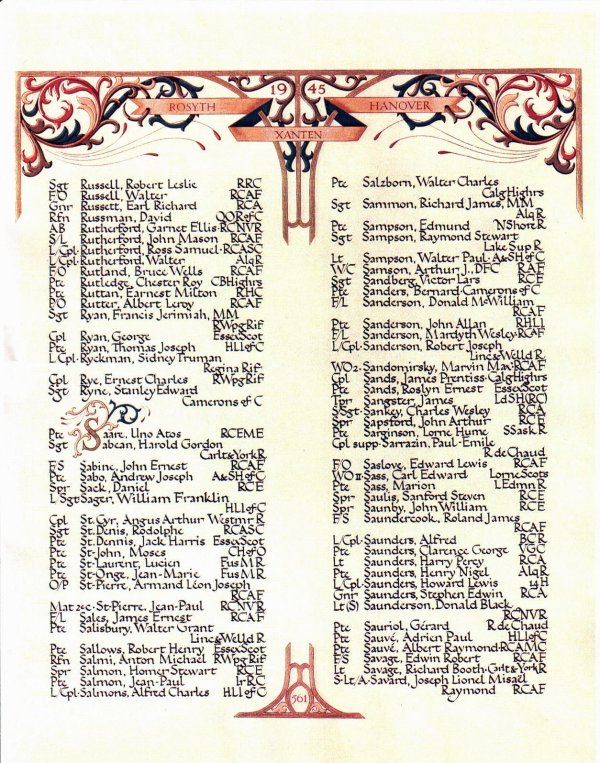 19 45
ROSYTH HANOVER
XANTEN
Sgt Russell, Robert Leslie RRC
F/O Russell, Walter RCAF
Gnr Russett, Earl Richard RCA
Rfn Russman, David QORofC
AB Rutherford, Garnet Ellis·RCNVR
S/L Rutherford, John Mason RCAF
L/Cpl·Rutherford, Ross Samuel·RCASC
L/Cpl·Rutherford, Walter AlqR
F/O Rutland, Bruce Wells RCAF
Pte Rutledge, Chester Roy CBHighrs
Pte Ruttan, Earnest Milton RHC
P/O Rutter, Albert Leroy RCAF
Sgt Ryan, Francis Jerimiah, MM
RWpgRif
Cpl Ryan, George EssexScot
Pte Ryan, Thomas Joseph HLIofC
L/Cpl·Ryckman, Sidney Truman
ReginaRif·
Cpl Rye, Ernest Charles RWpgRif
Sgt Ryne, Stanley Edward
Camerons of C
Pte Saare, Uno Atos RCEME
Sgt Sabean, Harold Gordon
Carlt&YorkR
F/S Sabine, John Ernest RCAF
Pte Sabo, Andrew Joseph A&SHofC
Spr Sack, Daniel RCE
L/Sgt Sager, William Franklin
HLIofC
Cpl St.Cyr, Angus Arthur WestmrR
Sgt St.Denis, Rodolphe RCASC
Pte St.Dennis, Jack Harris EssexScot
Pte St-John, Moses CHofO
Pte St-Laurent, Lucien FusMR
Pte St-Onge, Jean-Marie FusMR
O/P St-Pierre, Armand Léon Joseph
RCAF
Mat 2ec·St-Pierre, Jean-Paul RCNVR
F/L Sales, James Ernest RCAF
Pte Salisbury, Walter Grant
Linc&WelldR
Pte Sallows, Robert Henry EssexScot
Rfn Salmi, Anton Michael RWpgRif
Spr Salmon, Homer Stewart RCE
Pte Salmon, Jean-Paul IrRC
L/Cpl·Salmons, Alfred Charles HLIofC
Pte Salzborn, Walter Charles
CalgHighrs
Sgt Sammon, Richard James, MM
AlqR
Pte Sampson, Edmund NShoreR
Sgt Sampson, Raymond Stewart
LakeSupR
Lt Sampson, Walter Paul·A&SHofC
W/C Samson, Arthur J., DFC RAF
Sgt Sandberg, Victor Lars RCE
Pte Sanders, Bernard·Camerons of C
F/L Sanderson, Donald McWilliam
RCAF
Pte Sanderson, John Allan RHLI
F/L Sanderson, Mardyth Wesley·RCAF
L/Cpl·Sanderson, Robert Joseph
Linc&WelldR
WO2·Sandomirsky, Marvin Max·RCAF
Cpl Sands, James Prentiss·CalgHighrs
Pte Sands, Roslyn Ernest EssexScot
Tpr Sangster, James LdSH(RC)
S/Sgt·Sankey, Charles Wesley RCA
Spr Sapsford, John Arthur RCE
Pte Sarginson, Lorne Hume SSaskR
Cpl supp·Sarrazin, Paul-Emile
R de Chaud
F/O Saslove, Edward Lewis RCAF
WO II·Sass, Carl Edward LorneScots
Pte Sass, Marion LEdmnR
Spr Saulis, Sanford Steven RCE
Spr Saunby, John William RCE
F/S Saundercook, Roland James
RCAF
L/Cpl·Saunders, Alfred BCR
Pte Saunders, Clarence George VGC
Lt Saunders, Harry Percy RCA
Pte Saunders, Henry Nigel AlqR
L/Cpl·Saunders, Howard Lewis 14H
Gnr Saunders, Stephen Edwin RCA
Lt(S) Saunderson, Donald Black
RCNVR
Pte Sauriol, Gérard R de Chaud
Pte Sauvé, Adrien Paul HLIofC
Pte Sauvé, Albert Raymond·RCAMC
F/S Savage, Edwin Robert RCAF
Lt Savage, Richard Booth·Carlt&YorkR
S-Lt/A·Savard, Joseph Lionel Misaël
Raymond RCAF
561